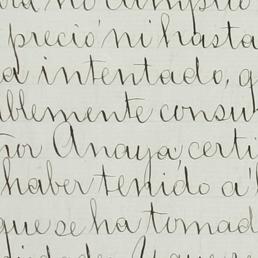 no cumplió
preció ni hasta
a intentado, q
blemente consu
ñor Anaya, certi
haber tenido a l
que se ha tomad